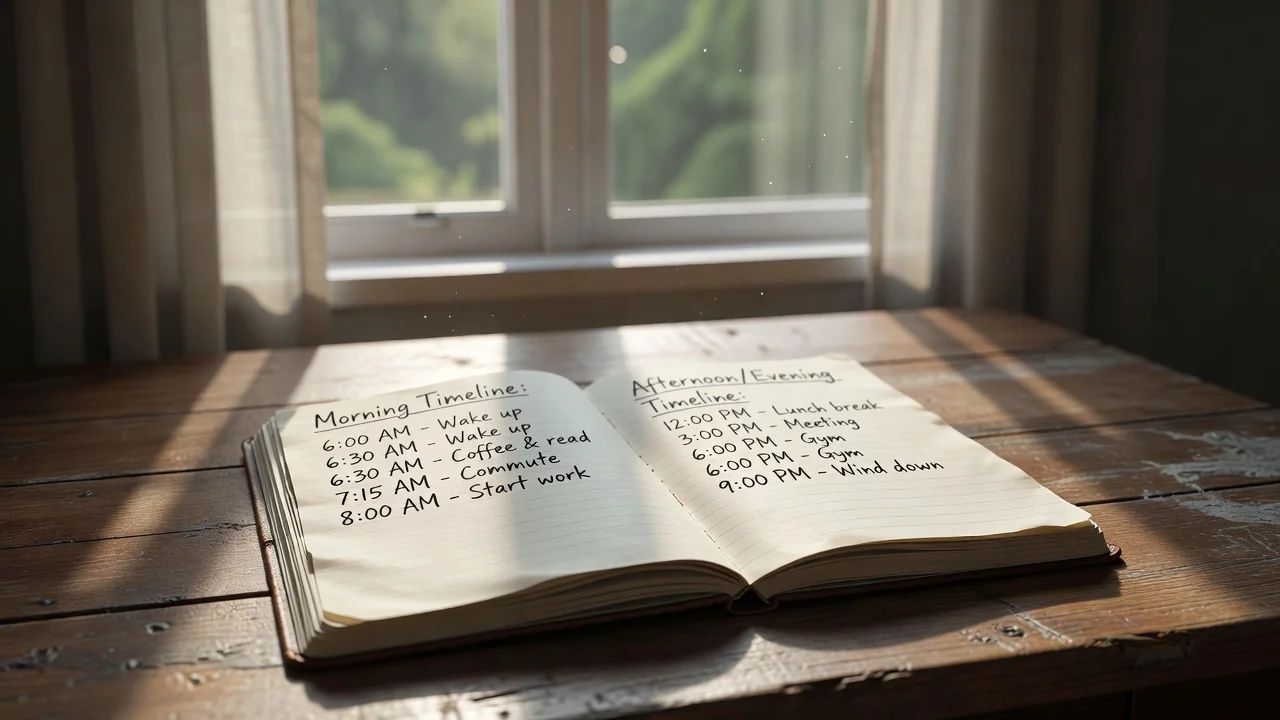 Morning Timeline:
6:00 AM - Wake up
6:30 AM - Wake up
6:30 AM - Coffee & read
7:15 AM - Commute
8:00 AM - Start work
Afternoon/Evening
Timeline:
12:00 PM - Lunch break
3:00 PM - Meeting
6:00 PM - Gym
6:00 PM - Gym
9:00 PM - Wind down